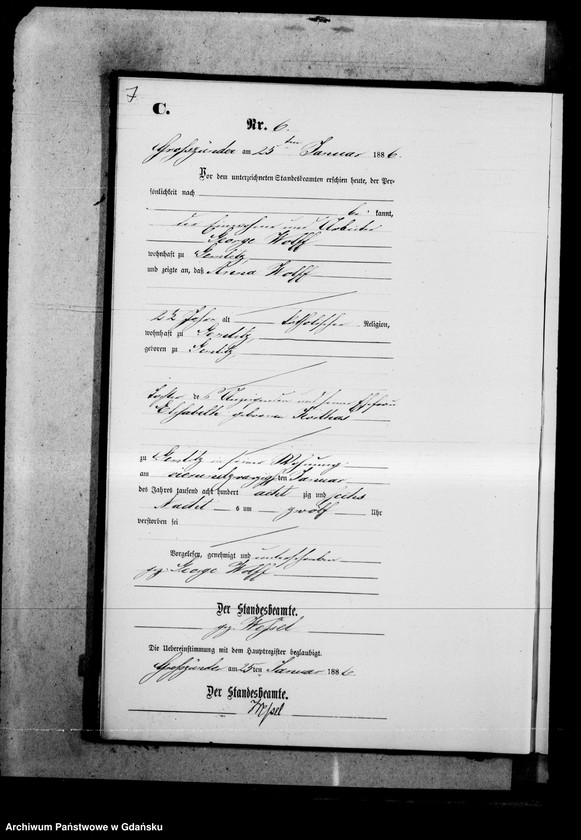 7
C.
Nr. 6.
Großzünder am 25ten Januar 1886.
Vor dem unterzeichneten Standesbeamten erschien heute, der Per-
sönlichkeit nach
be kannt,
der Einwohner und Arbeiter
George Wolff
wohnhaft zu Gemlitz
und zeigte an, daß Anna Wolff
22 Jahre alt katholischer Religion,
wohnhaft zu Gemlitz
geboren zu Gemlitz
Tochter des Anzeigenden und seiner Ehefrau
Elisabeth geborene
zu Gemlitz in seiner Wohnung
am vierundzwanzigsten Januar
des Jahres tausend acht hundert achtzig und sechs
Nachts um zwölf Uhr
verstorben sei
Vorgelesen, genehmigt und unterschrieben
gez. George Wolff
Der Standesbeamte.
gez. Wessel
Die Uebereinstimmung mit dem Hauptregister beglaubigt.
Großzünder am 25ten Januar 1886
Der Standesbeamte.
Wessel
Archiwum Państwowe w Gdańsku